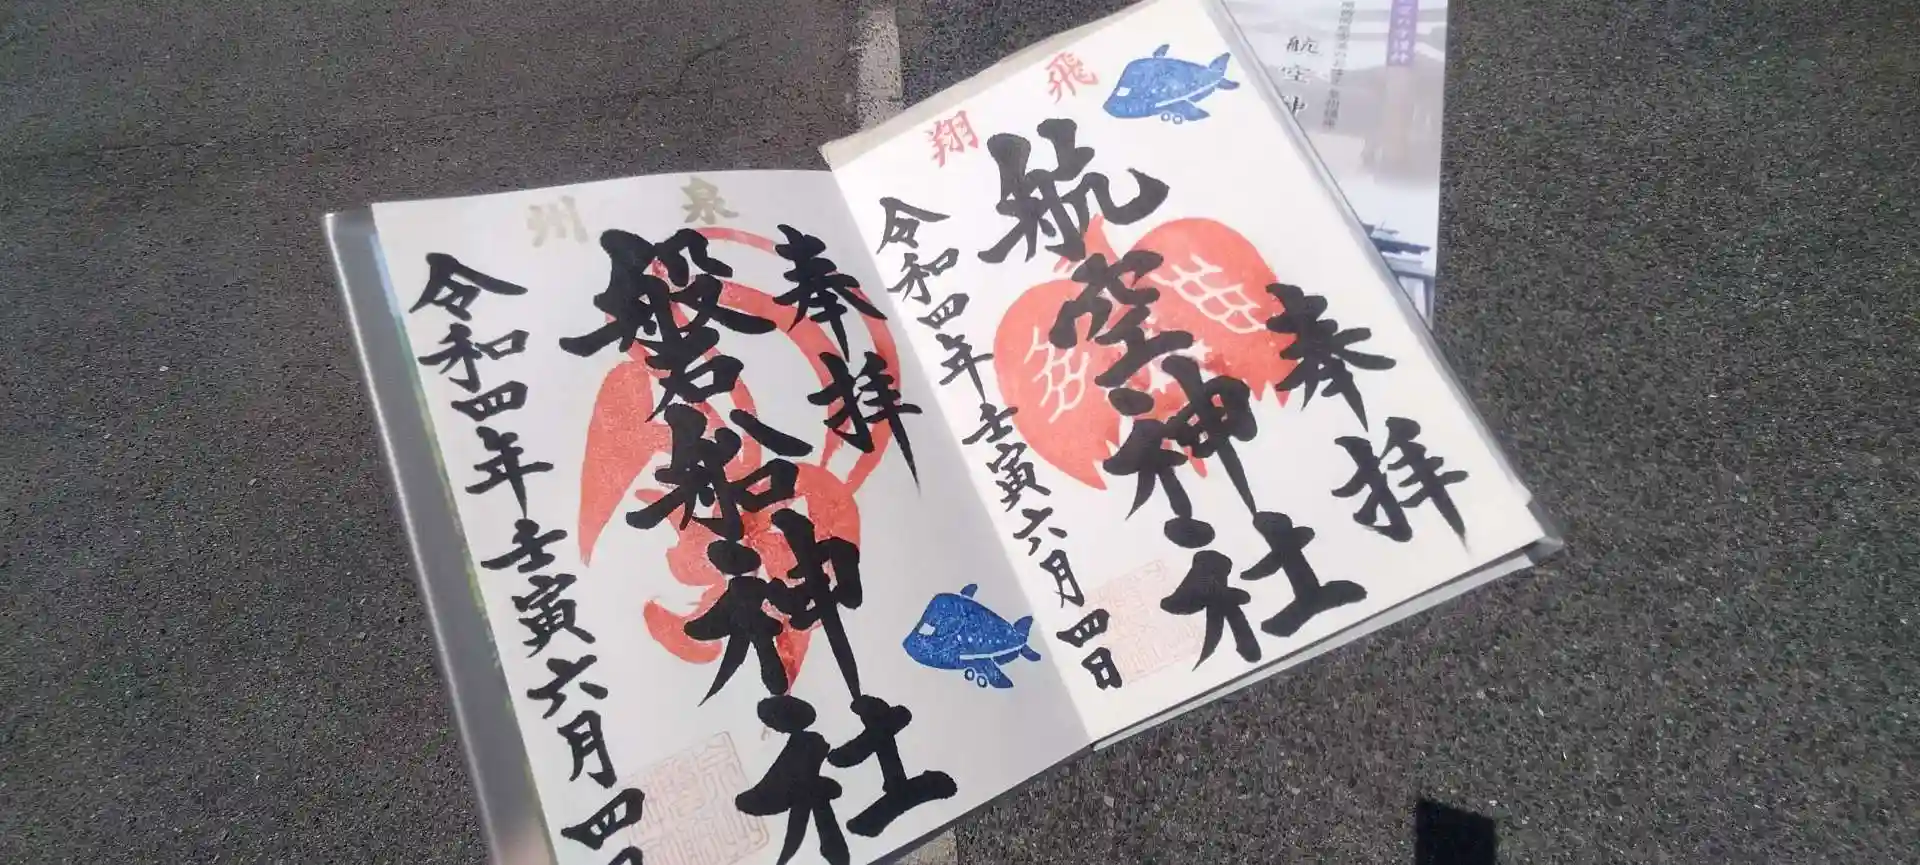 飛翔
奉拝
航空神社
令和四年壬寅六月四日
泉州
奉拝
磐船神社
令和四年壬寅六月四日
航空神